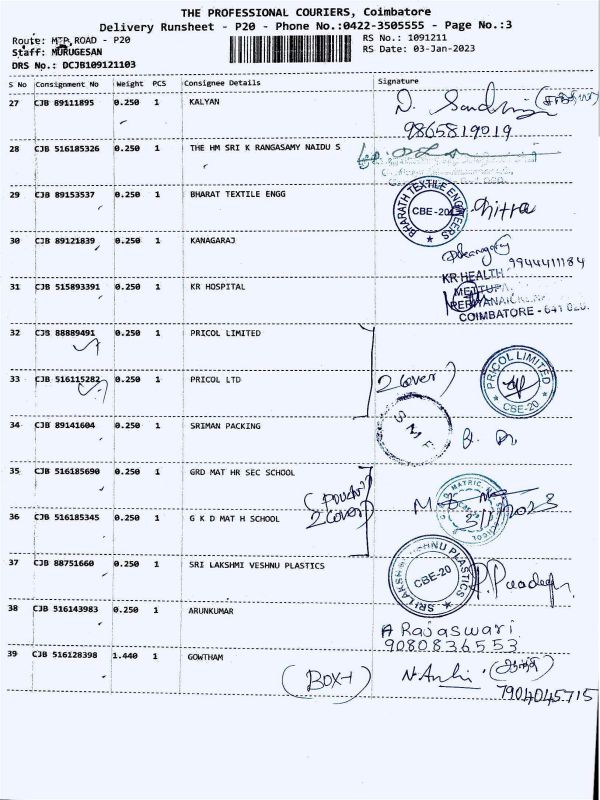 THE PROFESSIONAL COURIERS, Coimbatore
Delivery Runsheet - P20 - Phone No.:0422-3505555 - Page No.:3
Route: MTP ROAD - P20 RS No.: 1091211
Staff: MURUGESAN RS Date: 03-Jan-2023
DRS No.: DCJB109121103
S No Consignment No Weight PCS Consignee Details Signature
27 CJB 89111895 0.250 1 KALYAN
9865819019
28 CJB 516185326 0.250 1 THE HM SRI K RANGASAMY NAIDU S
29 CJB 89153537 0.250 1 BHARAT TEXTILE ENGG BHARATH TEXTILE ENGEERS CBE-20 Chitra
30 CJB 89121839 0.250 1 KANAGARAJ
9944411184
31 CJB 515893391 0.250 1 KR HOSPITAL KR HEALTH
METTUPA
COIMBATORE - 641 020.
32 CJB 88889491 0.250 1 PRICOL LIMITED
33 CJB 516115282 0.250 1 PRICOL LTD 2 cover PRICOL LIMITED CBE-20
34 CJB 89141604 0.250 1 SRIMAN PACKING S M F
35 CJB 516185690 0.250 1 GRD MAT HR SEC SCHOOL
(Pouch)
36 CJB 516185345 0.250 1 G K D MAT H SCHOOL 2 cover 3/1/2023
37 CJB 88751660 0.250 1 SRI LAKSHMI VESHNU PLASTICS SRI LAKSHMI VESHNU PLASTICS CBE-20 P. Pradeep
38 CJB 516143983 0.250 1 ARUNKUMAR A Rajaswari
9080836553
39 CJB 516128398 1.440 1 GOWTHAM
(BOX-1) 7904045715